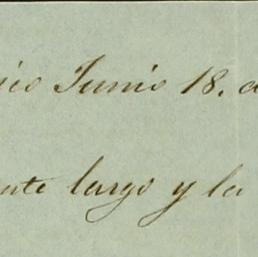 Junio 18. d
nte largo y la